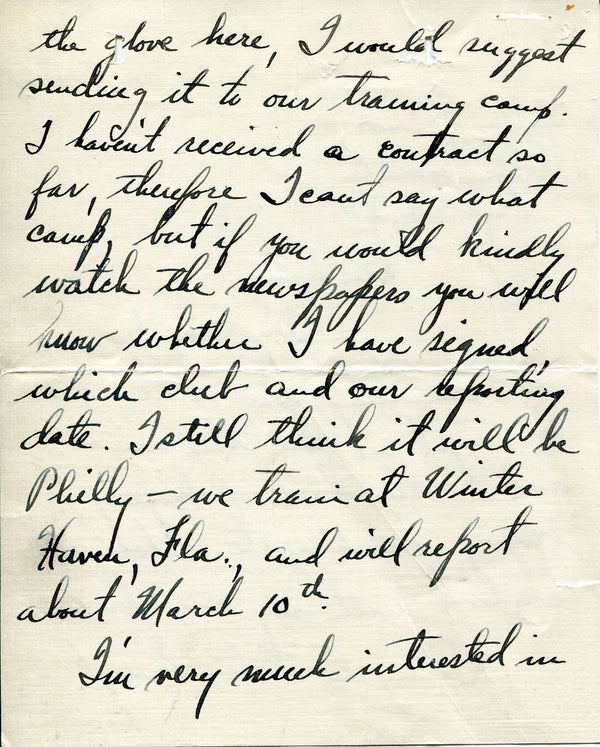 the glove here, I would suggest
sending it to our training camp.
I haven't received a contract so
far, therefore I can't say what
camp, but if you would kindly
watch the newspapers you will
know whether I have signed,
which club and our reporting
date. I still think it will be
Philly — we train at Winter
Haven, Fla., and will report
about March 10th.
I'm very much interested in